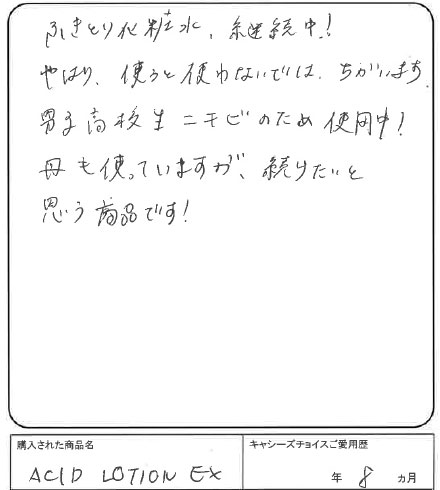 ふきとり化粧水、継続中!
やはり、使うと使わないでは、ちがいます。
男子高校生ニキビのため使用中!
母も使っていますが、続けたいと
思う商品です!
購入された商品名
ACID LOTION EX
キャシーズチョイスご愛用歴
年 8 ヵ月